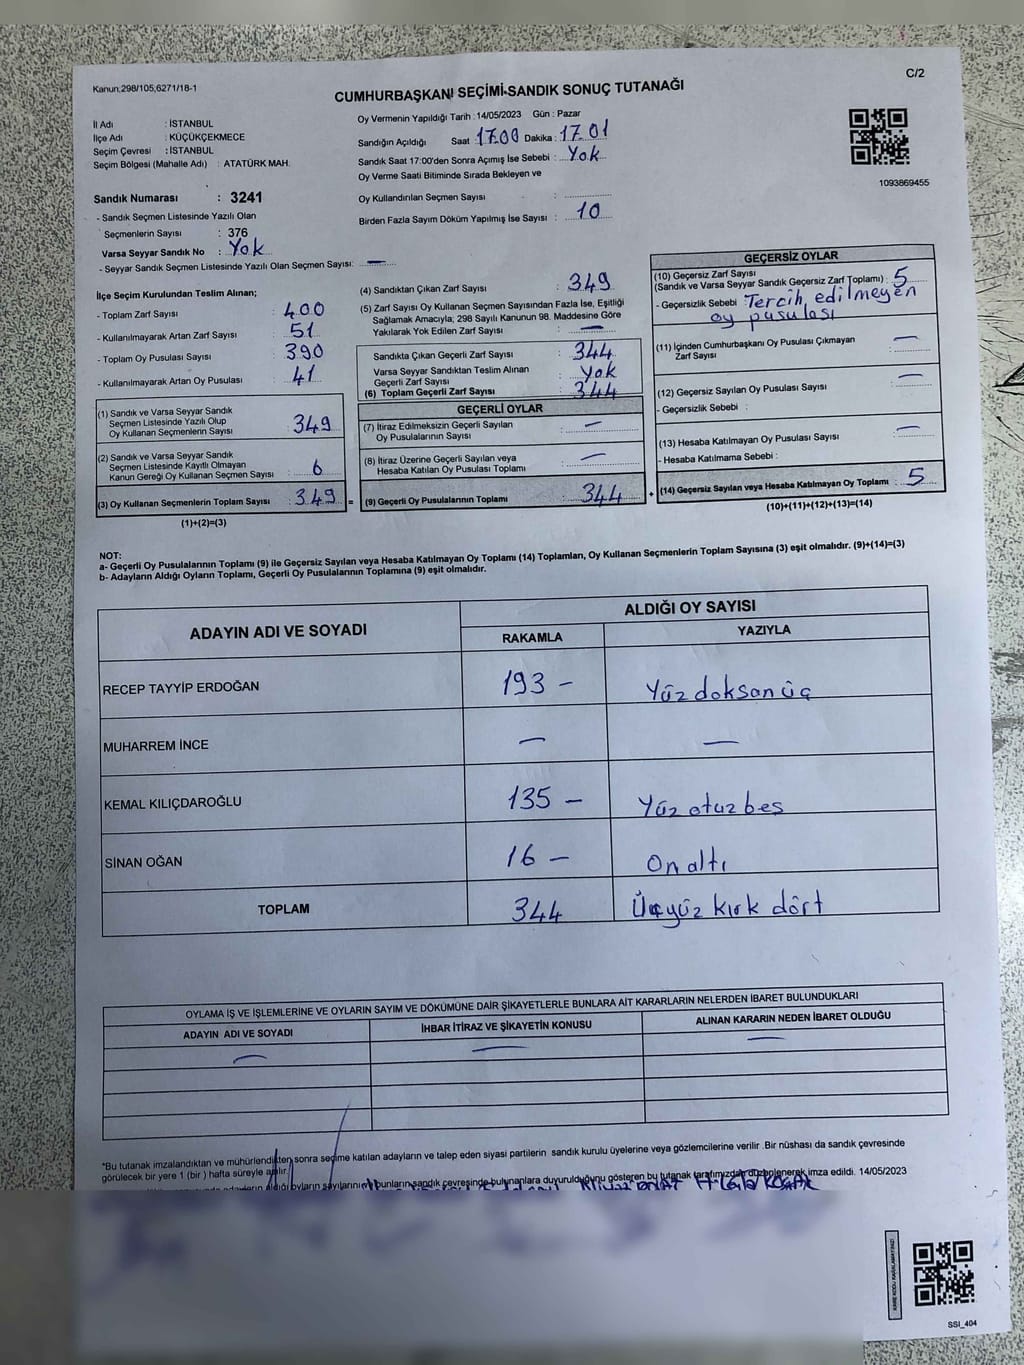 Kanun;298/105;6271/18-1
C/2
CUMHURBAŞKANI SEÇİMİ-SANDIK SONUÇ TUTANAĞI
İl Adı : İSTANBUL
İlçe Adı : KÜÇÜKÇEKMECE
Seçim Çevresi : İSTANBUL
Seçim Bölgesi (Mahalle Adı) : ATATÜRK MAH.
Oy Vermenin Yapıldığı Tarih : 14/05/2023 Gün : Pazar
Sandığın Açıldığı Saat : 17.00 Dakika : 17.01
Sandık Saat 17:00'den Sonra Açımış İse Sebebi : Yok
Oy Verme Saati Bitiminde Sırada Bekleyen ve
Oy Kullandırılan Seçmen Sayısı :
Birden Fazla Sayım Döküm Yapılmış İse Sayısı : 10
1093869455
Sandık Numarası : 3241
- Sandık Seçmen Listesinde Yazılı Olan
Seçmenlerin Sayısı : 376
Varsa Seyyar Sandık No : Yok
- Seyyar Sandık Seçmen Listesinde Yazılı Olan Seçmen Sayısı: —
İlçe Seçim Kurulundan Teslim Alınan;
- Toplam Zarf Sayısı : 400
- Kullanılmayarak Artan Zarf Sayısı : 51
- Toplam Oy Pusulası Sayısı : 390
- Kullanılmayarak Artan Oy Pusulası : 41
(1) Sandık ve Varsa Seyyar Sandık
Seçmen Listesinde Yazılı Olup
Oy Kullanan Seçmenlerin Sayısı : 349
(2) Sandık ve Varsa Seyyar Sandık
Seçmen Listesinde Kayıtlı Olmayan
Kanun Gereği Oy Kullanan Seçmen Sayısı : 6
(3) Oy Kullanan Seçmenlerin Toplam Sayısı : 349 =
(1)+(2)=(3)
(4) Sandıktan Çıkan Zarf Sayısı : 349
(5) Zarf Sayısı Oy Kullanan Seçmen Sayısından Fazla İse, Eşitliği
Sağlamak Amacıyla; 298 Sayılı Kanunun 98. Maddesine Göre
Yakılarak Yok Edilen Zarf Sayısı : —
Sandıkta Çıkan Geçerli Zarf Sayısı : 344
Varsa Seyyar Sandıktan Teslim Alınan
Geçerli Zarf Sayısı : Yok
(6) Toplam Geçerli Zarf Sayısı : 344
GEÇERLİ OYLAR
(7) İtiraz Edilmeksizin Geçerli Sayılan
Oy Pusulalarının Sayısı : —
(8) İtiraz Üzerine Geçerli Sayılan veya
Hesaba Katılan Oy Pusulası Toplamı : —
(9) Geçerli Oy Pusulalarının Toplamı : 344 +
GEÇERSİZ OYLAR
(10) Geçersiz Zarf Sayısı
(Sandık ve Varsa Seyyar Sandık Geçersiz Zarf Toplamı) : 5
- Geçersizlik Sebebi : Tercih edilmeyen
oy pusulası
(11) İçinden Cumhurbaşkanı Oy Pusulası Çıkmayan
Zarf Sayısı : —
(12) Geçersiz Sayılan Oy Pusulası Sayısı : —
- Geçersizlik Sebebi :
(13) Hesaba Katılmayan Oy Pusulası Sayısı : —
- Hesaba Katılmama Sebebi :
(14) Geçersiz Sayılan veya Hesaba Katılmayan Oy Toplamı : 5
(10)+(11)+(12)+(13)=(14)
NOT:
a- Geçerli Oy Pusulalarının Toplamı (9) ile Geçersiz Sayılan veya Hesaba Katılmayan Oy Toplamı (14) Toplamları, Oy Kullanan Seçmenlerin Toplam Sayısına (3) eşit olmalıdır. (9)+(14)=(3)
b- Adayların Aldığı Oyların Toplamı, Geçerli Oy Pusulalarının Toplamına (9) eşit olmalıdır.
ADAYIN ADI VE SOYADI
ALDIĞI OY SAYISI
RAKAMLA YAZIYLA
RECEP TAYYİP ERDOĞAN 193 - Yüz doksan üç
MUHARREM İNCE — —
KEMAL KILIÇDAROĞLU 135 - Yüz otuz beş
SİNAN OĞAN 16 - On altı
TOPLAM 344 Üçyüz kırk dört
OYLAMA İŞ VE İŞLEMLERİNE VE OYLARIN SAYIM VE DÖKÜMÜNE DAİR ŞİKAYETLERLE BUNLARA AİT KARARLARIN NELERDEN İBARET BULUNDUKLARI
ADAYIN ADI VE SOYADI İHBAR İTİRAZ VE ŞİKAYETİN KONUSU ALINAN KARARIN NEDEN İBARET OLDUĞU
— — —
*Bu tutanak imzalandıktan ve mühürlendikten sonra seçime katılan adayların ve talep eden siyasi partilerin sandık kurulu üyelerine veya gözlemcilerine verilir .Bir nüshası da sandık çevresinde
görülecek bir yere 1 (bir ) hafta süreyle asılır.
adayların aldığı oyların sayılarını bunların sandık çevresinde bulunanlara duyurulduğunu gösteren bu tutanak tarafımızdan düzenlenerek imza edildi. 14/05/2023
SSI_404